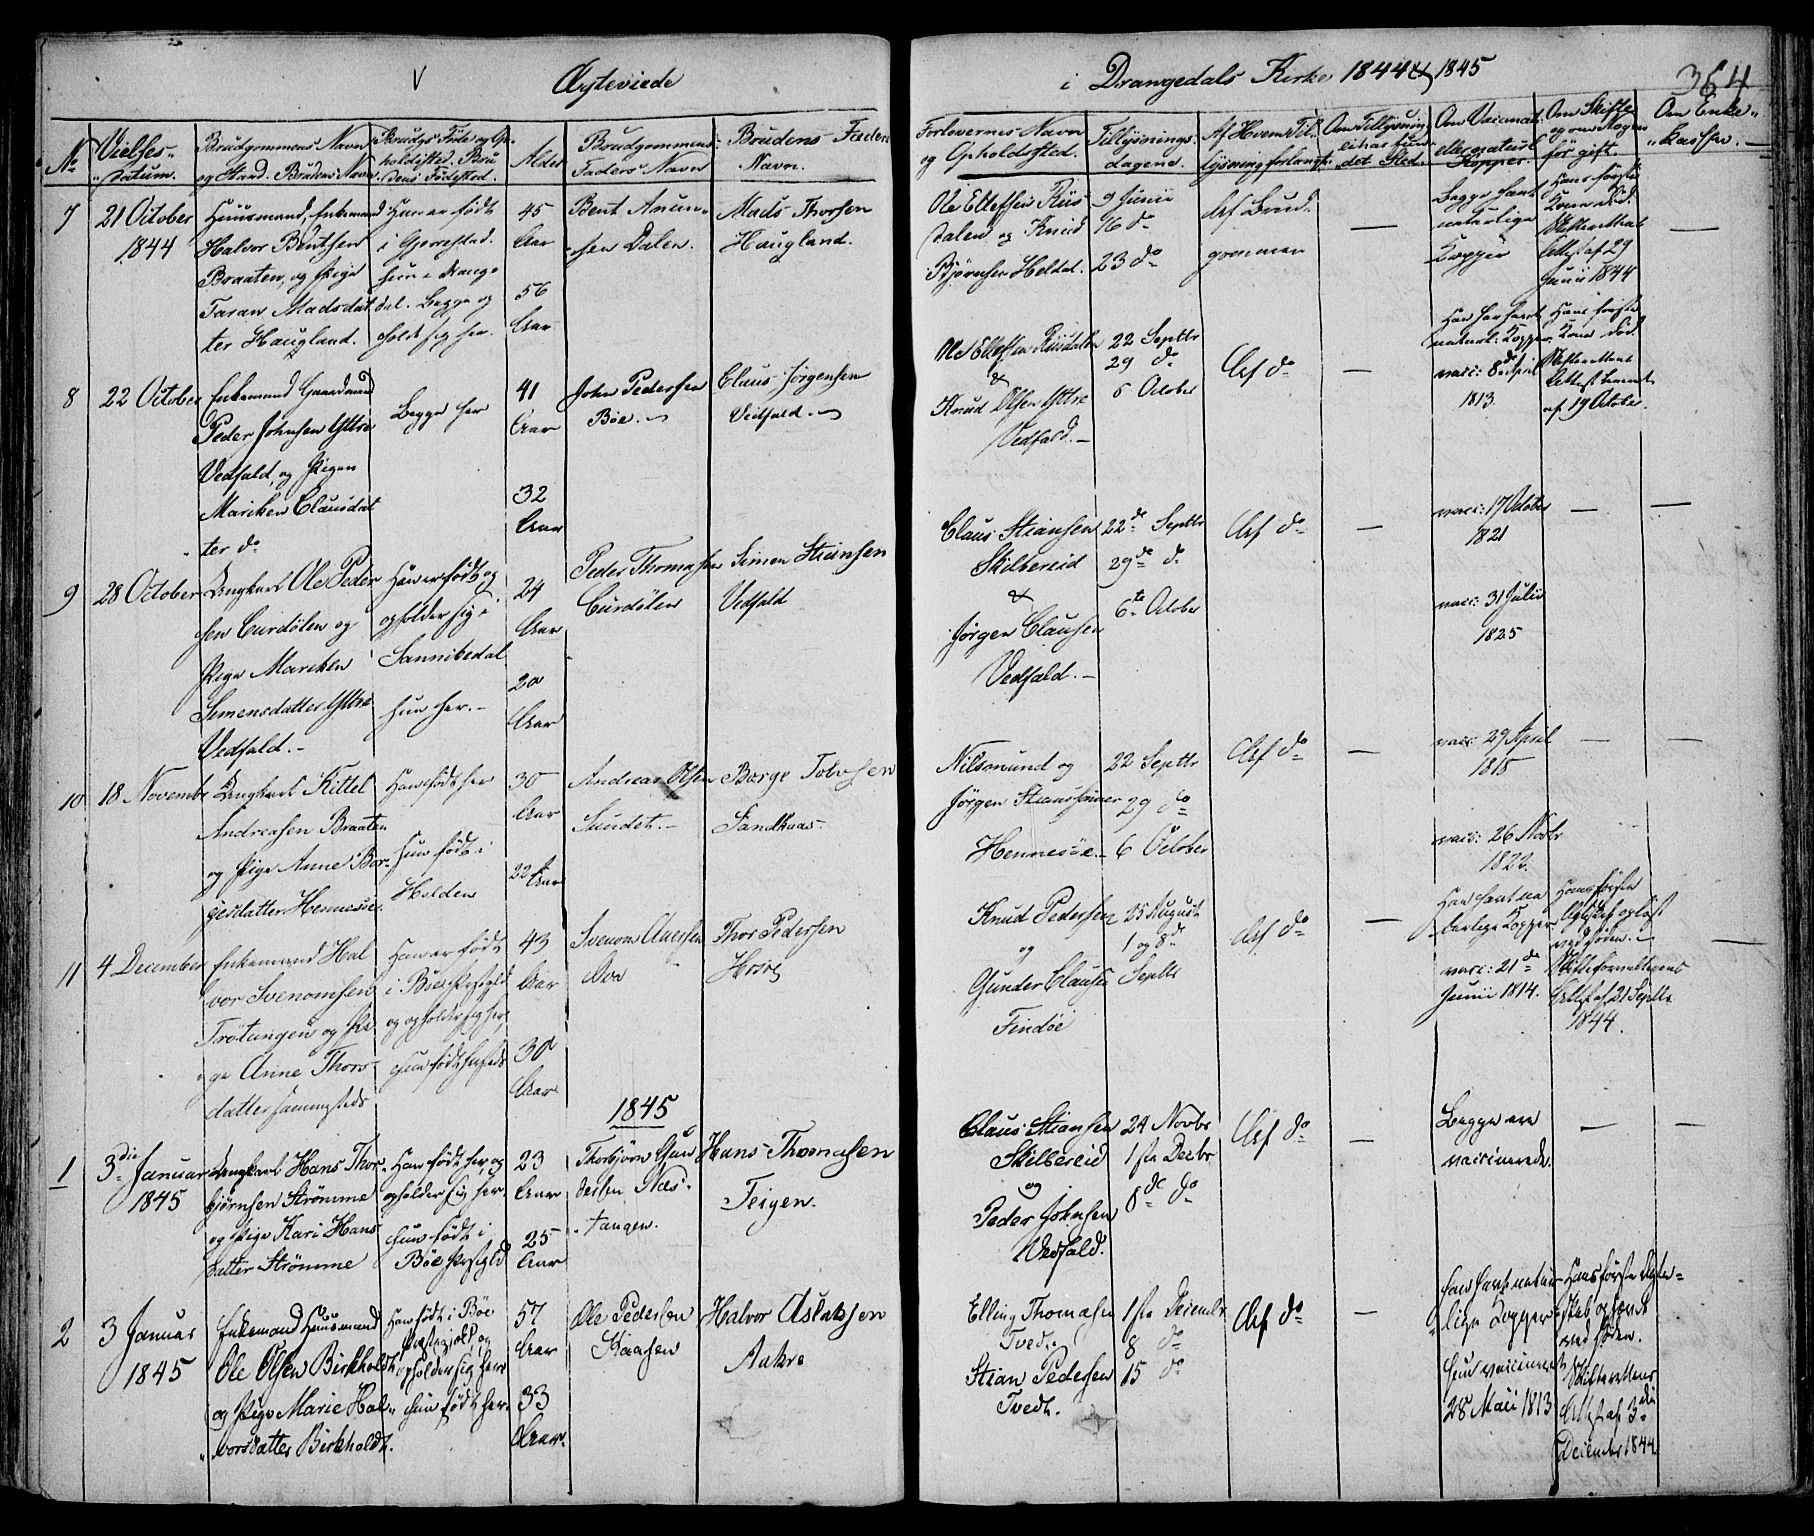 Ægteviede
i Drangedals Kirke 1844 & 1845
364
No
Vielses-
datum.
Brudgommens Navn
og Stand. Brudens Navn
Brudgs Føde og Op-
holdssted. Bru
dens Fødested.
Alder
Brudgommens
Faders Navn
Brudens Faders
Navn.
Forlovernes Navn
og Opholdssted.
Tillysnings-
dagene.
Af Hvem Til-
lysning forlangt
Om Vaccination
eller naturl.
Kopper.
Om Skifte
før gift
Om Enke-
kassen.
7
21 October
1844
Huusmand, Enkemand
Halvor Bentsen
Braaten, og Pige
Taran Madsdat
ter Haugland.
Han er født
i Gjerrestad.
hun i Drange
dal. Begge op
holde sig her.
45
Aar
56
Aar
Bent Anun-
sen Dalen.
Mads Thorsen
Haugland.
Ole Ellefsen Riis
dalen og Knud
Bjørnsen Heldal.
9 Junii
16 do
23 do
Af Brud-
gommen
—
Begge havt
naturlige
Kopper
Hans første
Kone død.
Skifterettens
Attest af 29
Junii 1844
—
8
22 October
Enkemand Gaardmand
Peder Johnsen Yttre
Vedfald, og Pigen
Mariken Clausdat
ter do
Begge her
41
Aar
32
Aar
John Pedersen
Bøe.
Claus Jørgensen
Vedfald.
Ole Ellefsen Riisdalen
&
Knud Olsen Yttre
Vedfald.
22 Septbr
29 do
6 October
Af do
—
Han har havt
naturl. Kopper.
vacc: 8de April
1813.
Hans første
Kone død.
af 19 October.
9
28 October
Ungkarl Ole Peder
sen Curdølen og
Pige Mariken
Simensdatter Yttre
Vedfald.
Han er født og
opholder sig i
Sannikedal
hun her.
24
Aar
20
Aar
Peder Thomasen
Curdølen
Simen Stiansen
Vedfald
Claus Stiansen
Skilbereid
&
Jørgen Clausen
Vedfald.
22de Septbr
29de d.
6te October
Af do
—
vacc: 17 October
1821
vacc: 31 Julii
1825
—
—
10
18 Novembr
Ungkarl Kittel
Andreasen Braaten
og Pige Anne Bor-
gesdatter Hennesøe.
Han født her
hun født i
Holden
30
Aar
22
Aar
Andreas Olsen
Sundet.
Borge Tolvsen
Sandkaas.
Nilsmund og
Jørgen Stianssønner
Hennesøe.
22 Septbr
29 do
6 October
Af do
—
vacc: 29 April
1815
vacc: 26 Novbr
1822.
—
—
11
4 December
Enkemand Hal
vor Svenomsen
Trøtangen og Pi
ge Anne Thors-
datter sammesteds
Han er født
i Bøe Præstegjeld
og opholder sig her,
hun født heesteds
43
Aar
30
Aar
Svenom Aversen
Ova
Thor Pedersen
Knud Pedersen
og
Gunder Clausen
Findøe
25 August
1 og 8de
Septbr
Af do
—
Han havt na
turlige Kopper.
vacc: 21de
Junii 1814.
Hans første
Ægteskab opløst
ved døden.
Skifteforvalterens
Attest af 21 Septbr
1844.
—
1845
1
3die Januar
1845
Ungkarl Hans Thor
bjørnsen Strømme
og Pige Kari Hans
datter Strømme
Han født her, og
opholder sig her.
hun født i
Bøe Præstegjeld
23
Aar
25
Aar
Thorbjørn Gun
dersen Næs-
tangen.
Hans Thomasen
Teigen.
Claus Stiansen
Skilbereid
og
Peder Johnsen
Vedfald.
24 Novbr
1ste Decbr
8de do
Af do
—
Begge ere
vaccinerede.
—
—
2
3 Januar
1845
Enkemand Huusmand
Ole Olsen Birkholdt
og Pige Marie Hal-
vorsdatter Birkholdt.
Han født i Bøe
Præstegjeld, og
opholder sig her
hun født her.
57
Aar
33
Aar.
Ole Pedersen
Kaasen
Halvor Aslaksen
Aakre
Elling Thomasen
Tvedt.
Stian Pedersen
Tvedt.
1ste Decembr
8 do
15 do
Af do
—
han havt natur-
lige Kopper
hun vaccineret
28 Mai 1813
Hans første Ægte-
skab ophævet
ved døden.
Skifterettens
Attest af 3die
December 1844